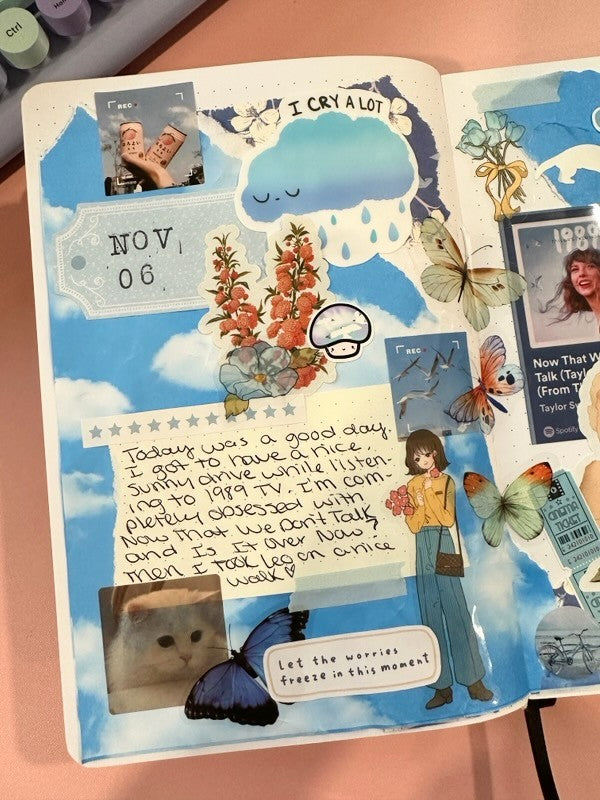 Ctrl
REC
I CRY A LOT
NOV
06
Today was a good day.
I got to have a nice,
sunny drive while listen-
ing to 1989 TV. I'm com-
pletely obsessed with
Now That We Don't Talk
and Is It Over Now?
Then I took Leo on a nice
walk
REC
Let the worries
freeze in this moment
1989
Now That W
Talk (Tayl
(From T
Taylor Sw
Spotify
CINEMA
TICKET